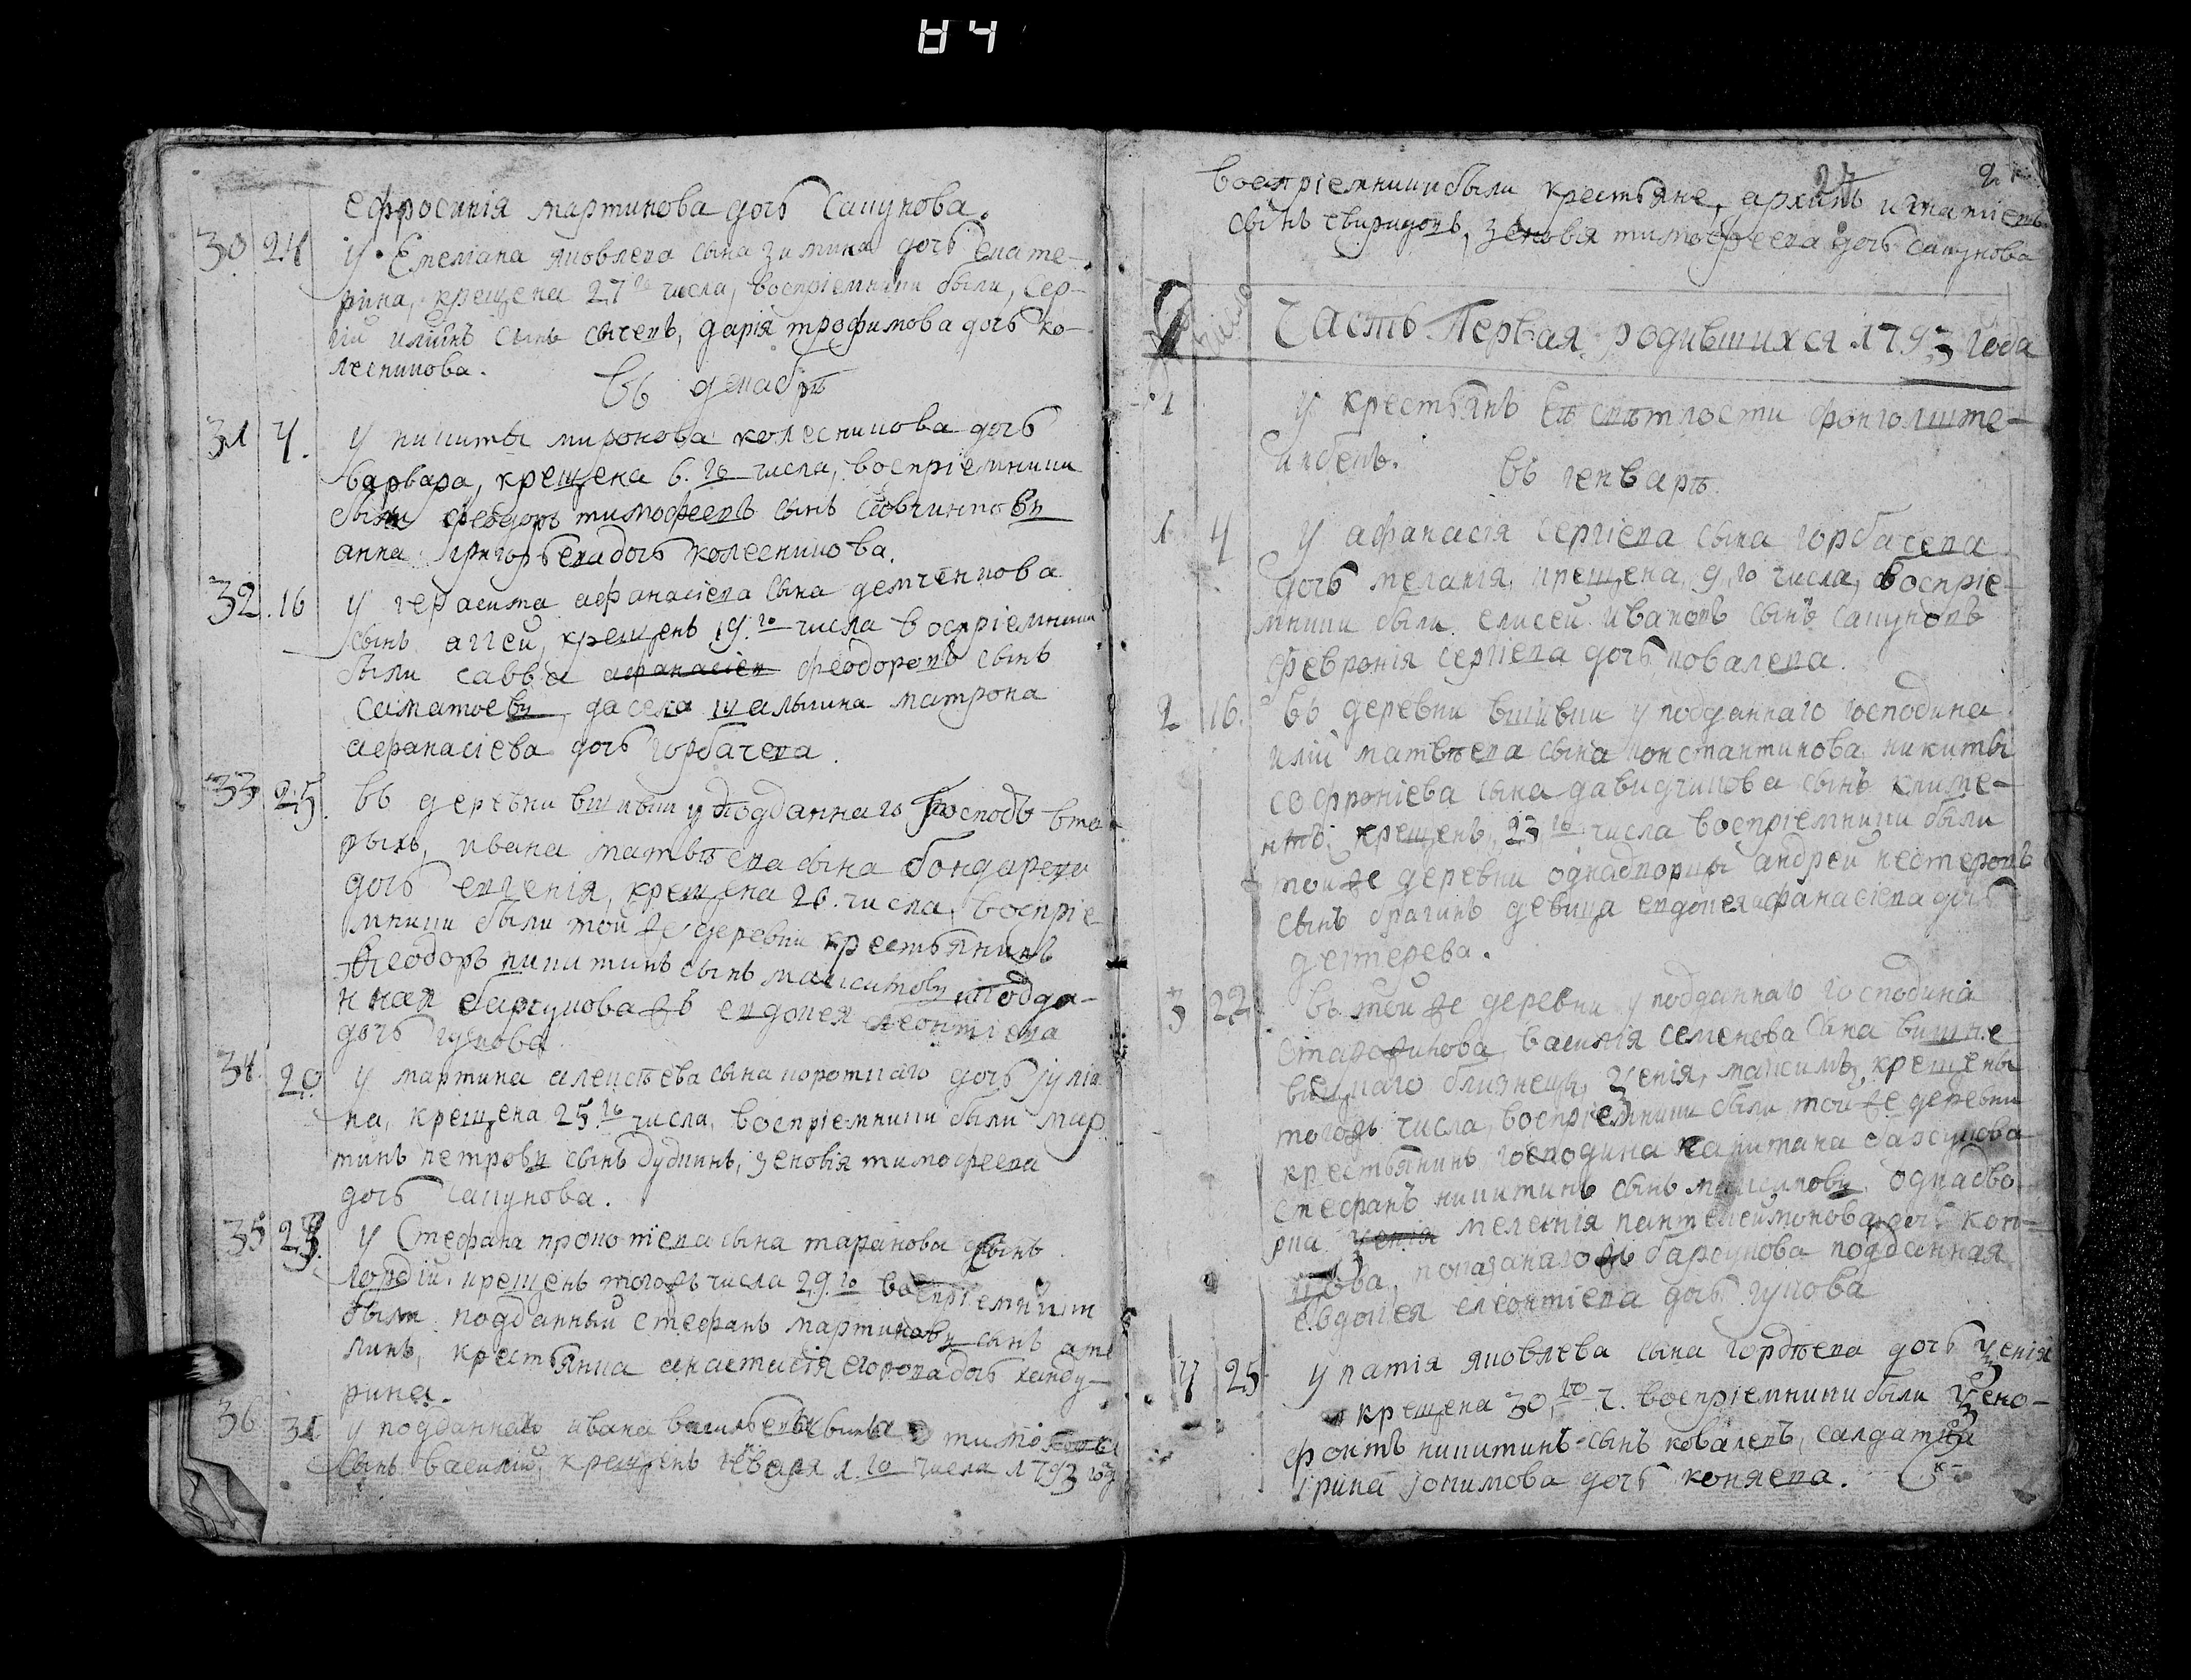 84
ефросинія мартинова дочь сапунова.
30 24 У Емеліана яковлева сына зимина дочь екате-
рина, крещена 27 го числа, воспріемники были, Сер-
гій иліинъ сынъ сычевъ, дарія трофимова дочь ко-
лесникова.
Въ декабрѣ
31 4. У никиты миронова колесникова дочь
варвара, крещена 6. го числа, воспріемники
были феодоръ тимофеевъ сынъ
анна григорьева дочь колесникова.
32. 16 У герасима афанасіева сына демченкова
сынъ аггей, крещенъ 19. го числа воспріемники
были савва афанасіев феодоровъ сынъ
да села матрона
афанасіева дочь горбачева.
33 25. въ деревни вшивки у подданнаго господъ
ивана матвѣева сына бондарева
дочь евгенія, крещена 26. числа, воспріе-
мники были той же деревни крестьянинъ
Феодоръ никитинъ сынъ подда-
нная барсукова жъ евдокея леонтіева
дочь гукова
34. 20. У мартина алексѣева сына короткаго дочь іуліа
на, крещена 25. го числа, воспріемники были мар
тинъ петровъ сынъ дудкинъ, зеновія тимофеева
дочь сапунова.
35 23. У Стефана прокопіева сына таранова сынъ
гордій, крещенъ тогожъ числа 29. го воспріемники
были подданный стефанъ мартиновъ сынъ
линъ, крестьянка анастасія егорова дочь
рина.
36 31 У подданнаго ивана васильева сына
сынъ василій, крещенъ генваря 1. го числа 1793 год
24
воспріемники были крестьяне, архипъ игнатіевъ
сынъ свиридовъ, зеновія тимофеева дочь сапунова
число
Часть Первая родившихся 1793 года
1 У крестьянъ Ея свѣтлости фонголште-
инбекъ.
Въ генварѣ.
1 4 У афанасія сергіева сына горбасева
дочь меланія, крещена 9. го числа, воспріе-
мники были елисей ивановъ сынъ сапуновъ
февронія сергіева дочь ковалева.
2 16. Въ деревни вшивки у подданнаго господина
илій матвѣева сына константинова никиты
софроніева сына давидчикова сынъ климе-
нтъ, крещенъ, 23 го числа воспріемники были
тойже деревни однадворцы андрей нестеровъ
сынъ брагинъ девица евдокея афанасіева дочь
дегтерева.
3 22 Въ той же деревни у подданнаго господина
василія семенова сына вишне
вецкаго близнецы, ксенія, максимъ, крещены
тогожъ числа, воспріемники были той же деревни
крестьянинъ господина капитана барсукова
стефанъ никитинъ сынъ однадво
рца ксенія меленія пантелеймонова дочь коп-
цова, показанаго жъ барсукова подданная
евдокея слеонтіева дочь гукова
4 25 У патія яковлева сына гордѣева дочь ксенія
крещена 30, го ч. воспріемники были ксено-
фонтъ никитинъ сынъ ковалевъ, салдатка
ірина іокимова дочь коняева.